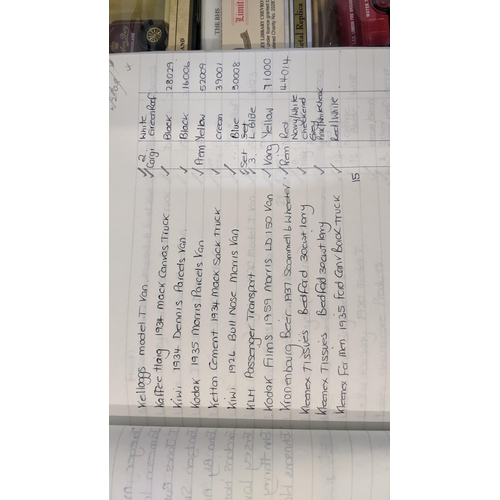 Kelloggs model T Van ✓✓ 2 White
Corgi Green Roof
Kaffee Hag 1934 Mack Canvas Truck ✓ Black 28029
Kiwi 1934 Dennis Parcels Van ✓ Black 16006
Kodak 1935 Morris Parcels Van ✓ Prem Yellow 52009
Ketton Cement 1934 Mack Sack Truck ✓ Green 39001
Kiwi 1926 Bull Nose Morris Van ✓ Blue 50008
KLM Passenger Transport ✓ Set 3 Set L. Blue
Kodak Films 1959 Morris LD 150 Van ✓ Vang Yellow 71000
Kronenbourg Beer 1937 Scammell 6 Wheeler ✓ Prem Red 44014
Kleenex Tissues Bedford 30cwt lorry ✓ Navy/White checkered
Kleenex Tissues Bedford 30cwt lorry ✓ Grey
Kleenex For Men 1935 Ford Canv Back Truck ✓ Red/White
15
THE RHS
Limit
LIBRARY CHEVRON
etal Replica